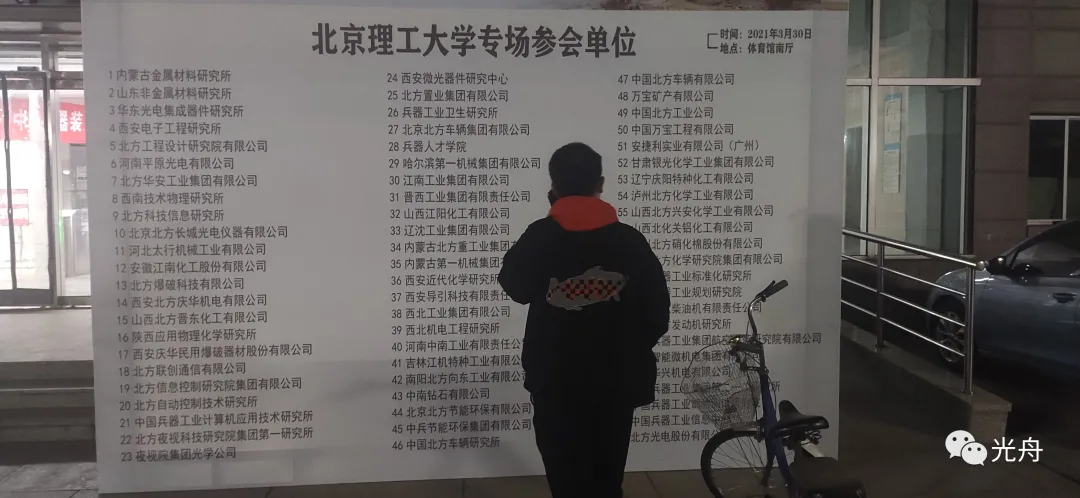 北京理工大学专场参会单位
时间：2021年3月30日
地点：体育馆南厅
1 内蒙古金属材料研究所
2 山东非金属材料研究所
3 华东光电集成器件研究所
4 西安电子工程研究所
5 北方工程设计研究院有限公司
6 河南平原光电有限公司
7 北方华安工业集团有限公司
8 西南技术物理研究所
9 北方科技信息研究所
10 北京北方长城光电仪器有限公司
11 河北太行机械工业有限公司
12 安徽江南化工股份有限公司
13 北方爆破科技有限公司
14 西安北方庆华机电有限公司
15 山西北方晋东化工有限公司
16 陕西应用物理化学研究所
17 西安庆华民用爆破器材股份有限公司
18 北方联创通信有限公司
19 北方信息控制研究院集团有限公司
20 北方自动控制技术研究所
21 中国兵器工业计算机应用技术研究所
22 北方夜视科技研究院集团第一研究所
23 夜视院集团光学公司
24 西安微光器件研究中心
25 北方置业集团有限公司
26 兵器工业卫生研究所
27 北京北方车辆集团有限公司
28 兵器人才学院
29 哈尔滨第一机械集团有限公司
30 江南工业集团有限公司
31 晋西工业集团有限责任公司
32 山西江阳化工有限公司
33 辽沈工业集团有限公司
34 内蒙古北方重工业集团有
35 内蒙古第一机械集团
36 西安近代化学研究所
37 西安导引科技有限责任
38 西北工业集团有限公司
39 西北机电工程研究所
40 河南中南工业有限责任公
41 吉林江机特种工业有限
42 南阳北方向东工业有限公
43 中南钻石有限公司
44 北京北方节能环保有限公
45 中兵节能环保集团有限公司
46 中国北方车辆研究所
47 中国北方车辆有限公司
48 万宝矿产有限公司
49 中国北方工业公司
50 中国万宝工程有限公司
51 安捷利实业有限公司（广州）
52 甘肃银光化学工业集团有限公司
53 辽宁庆阳特种化工有限公司
54 泸州北方化学工业有限公司
55 山西北方兴安化学工业有限公司
山西北化关铝化工有限公司
北方硝化棉股份有限公司
方化学研究院集团有限公司
器工业标准化研究所
工业规划研究院
柴油机有限责任公司
发动机研究所
兵器工业集团航空
研究院有限公司
智能微机电集团有
华兴机电有限公司
兵器工业集团
中国兵器工业
中国兵器信息
北方光电股份有限公
光舟